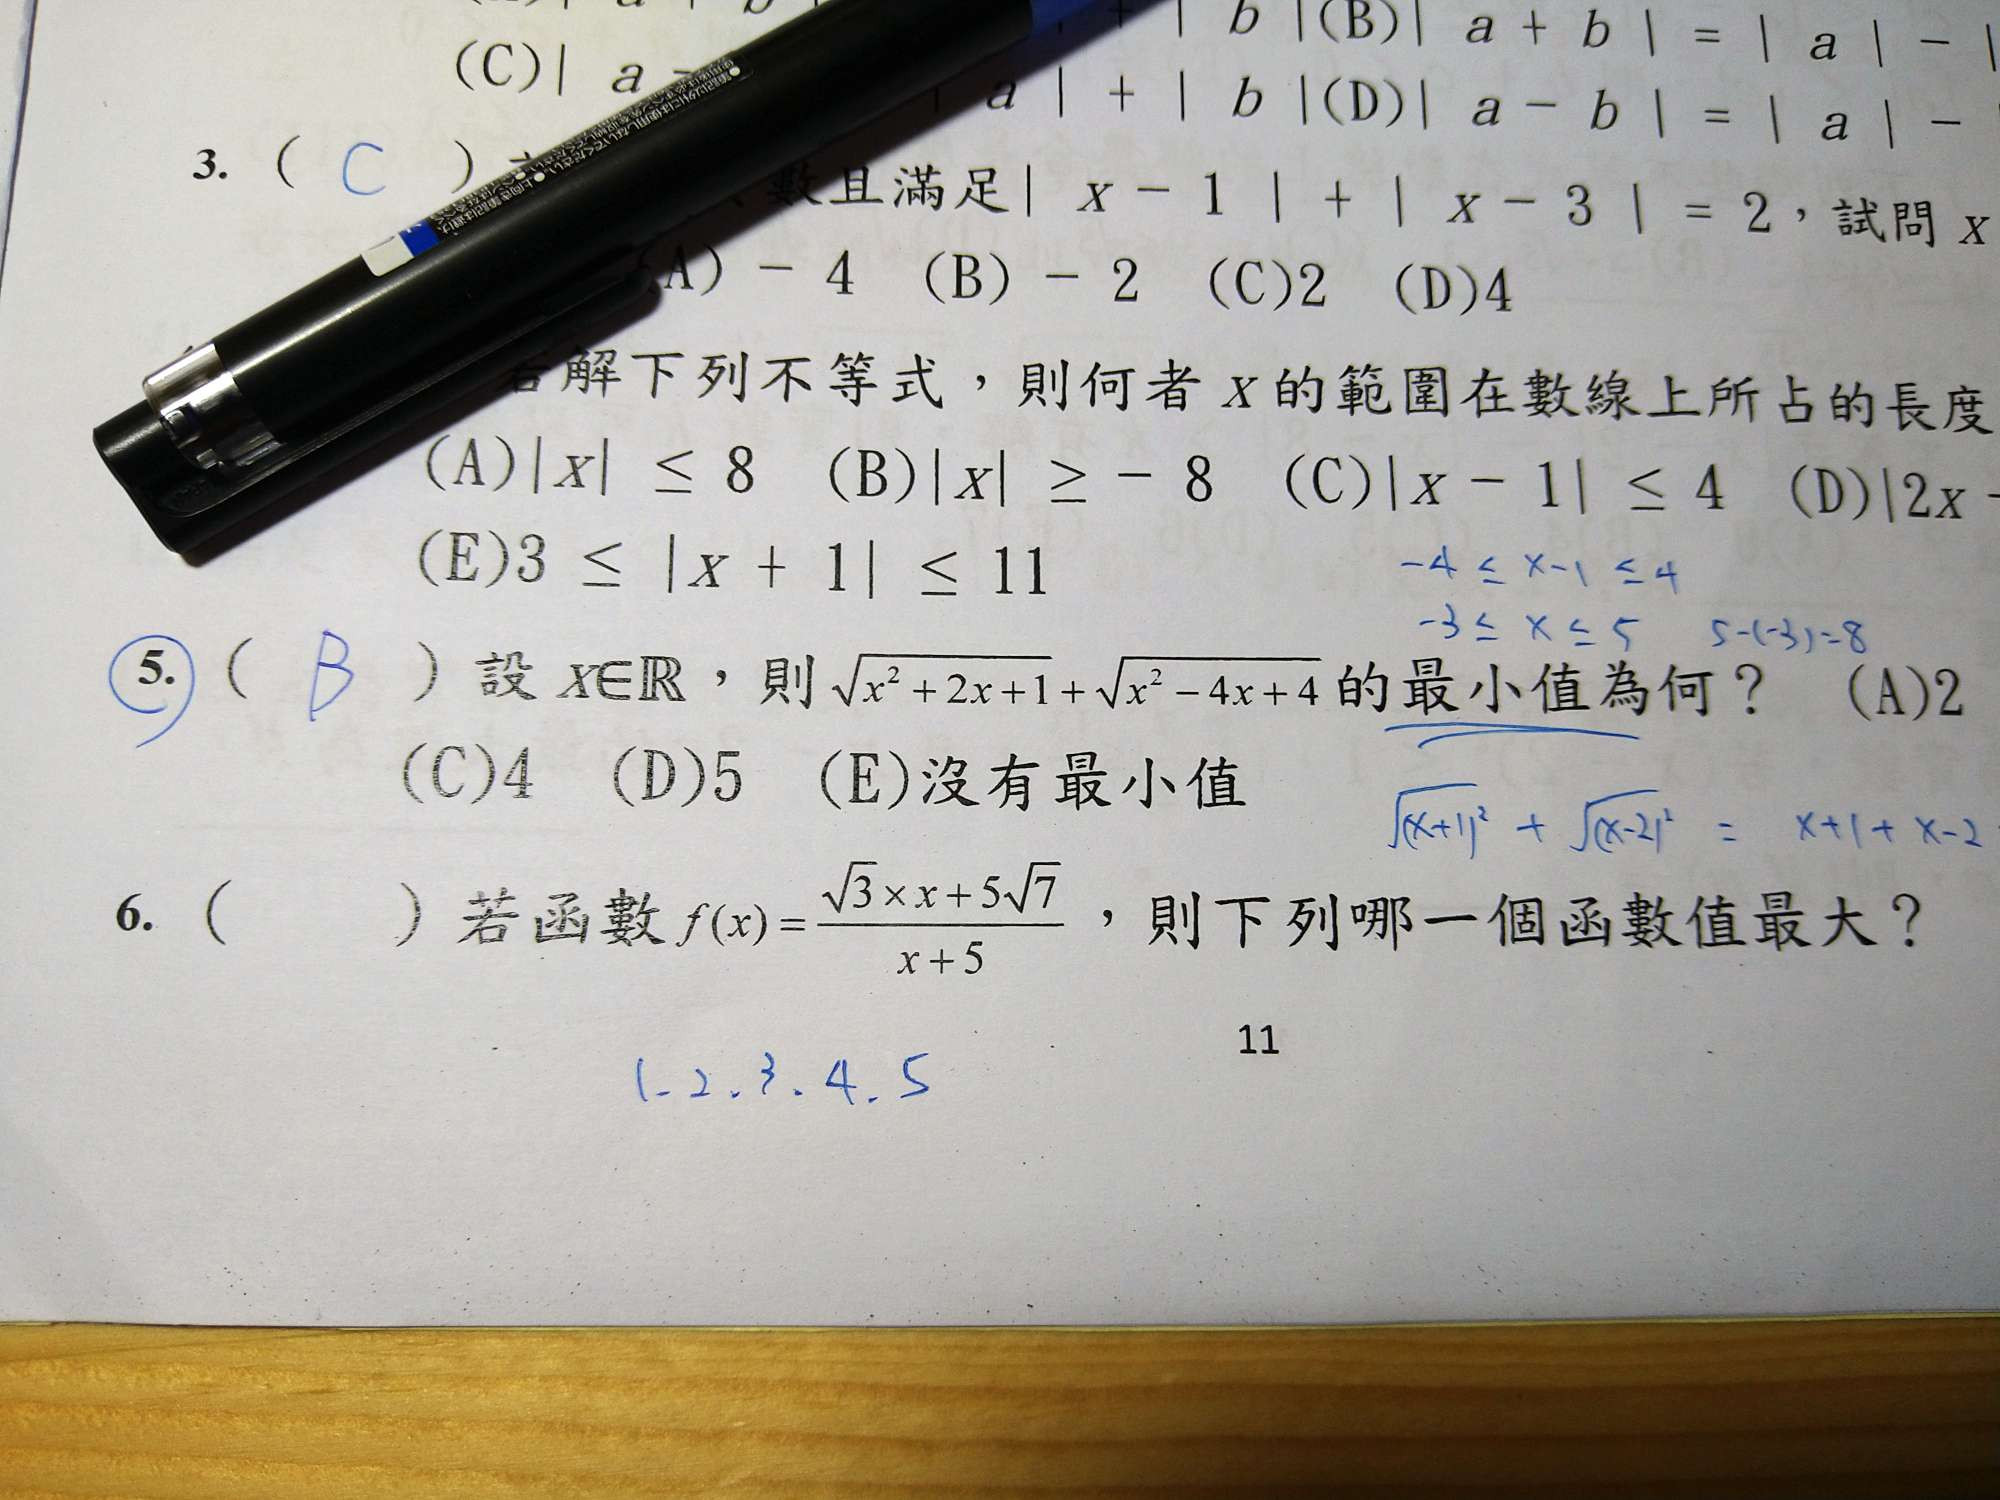 | b |(B)| a + b | = | a | - |
(C)| a - | a | + | b |(D)| a - b | = | a | -
3. ( C ) 數且滿足| x - 1 | + | x - 3 | = 2，試問 x
(A) - 4 (B) - 2 (C)2 (D)4
若解下列不等式，則何者 x 的範圍在數線上所占的長度
(A)|x| ≤ 8 (B)|x| ≥ - 8 (C)|x - 1| ≤ 4 (D)|2x -
(E)3 ≤ |x + 1| ≤ 11
-4 ≤ x-1 ≤ 4
-3 ≤ x ≤ 5 5-(-3)=8
5. ( B ) 設 x∈ℝ，則 √(x²+2x+1)+√(x²-4x+4) 的最小值為何？ (A)2
(C)4 (D)5 (E)沒有最小值
√(x+1)² + √(x-2)² = x+1+x-2
6. ( ) 若函數 f(x)=(√3×x+5√7)/(x+5)，則下列哪一個函數值最大？
11
1.2.3.4.5